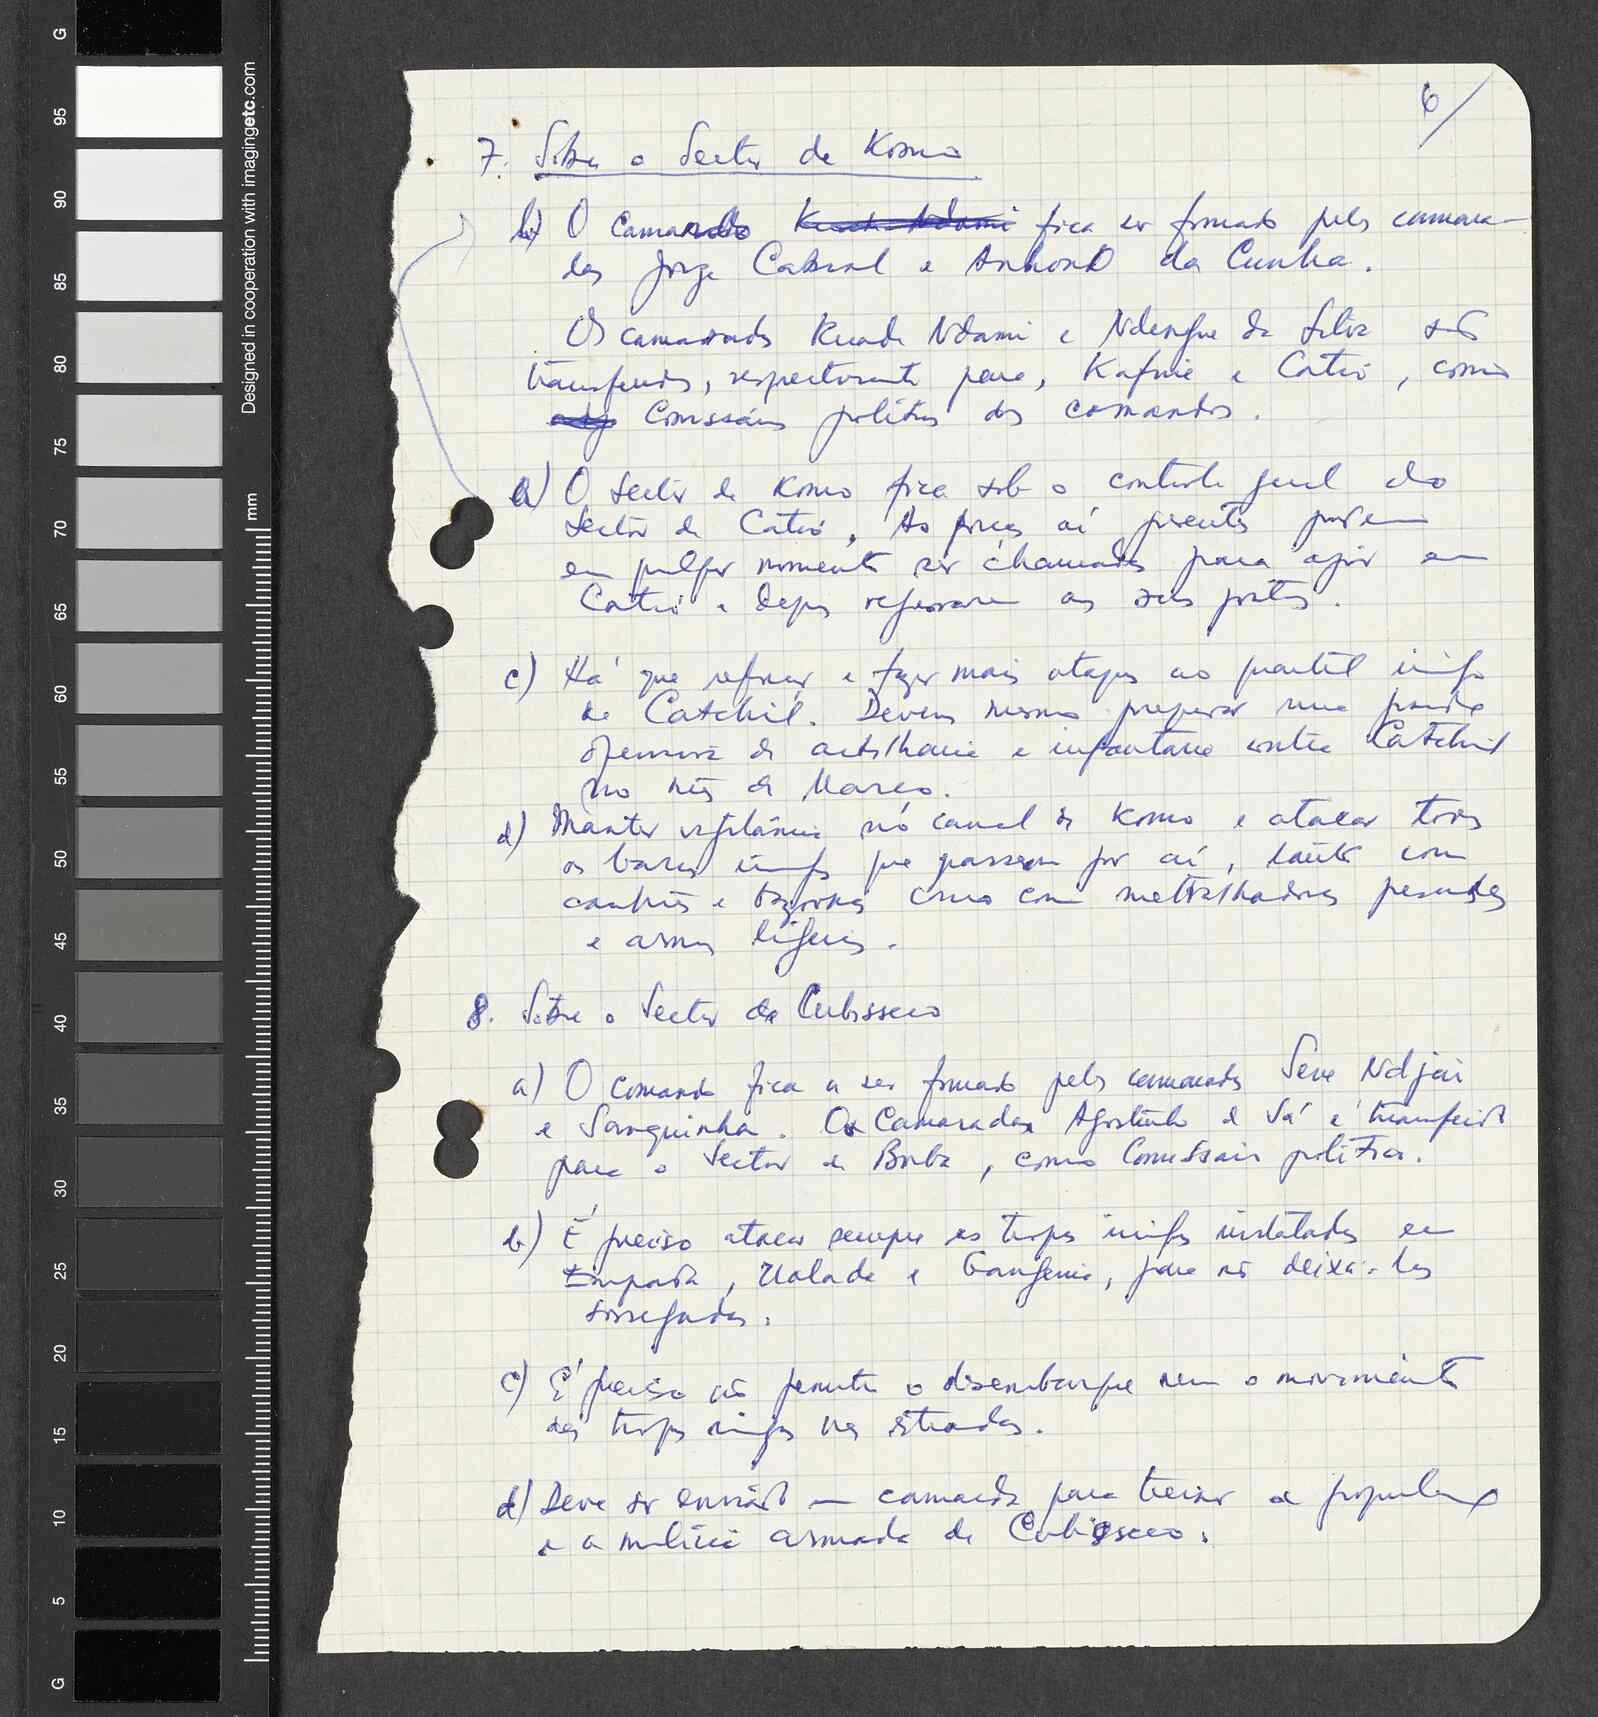 6/
7. Sobre o Sector de Komo
b) O Comando Kuade Ndami fica ser formado pelos camara-
das Jorge Cabral e António da Cunha.
Os camaradas Kuade Ndami e Ndengue da Silva são
transferidos, respectivamente para, Kafine e Catió, como
Comissários políticos dos comandos.
a) O Sector de Komo fica sob o controle geral do
Sector de Catió. As forças aí presentes podem
em qualquer momento ser chamadas para agir em
Catió e depois regressarem aos seus postos.
c) Há que reforçar e fazer mais ataques ao quartel inimigo
de Catchil. Devem mesmo preparar uma grande
ofensiva de artilharia e infantaria contra Catchil
no mês de Março.
d) Manter vigilância nó canal de Komo e atacar todos
os barcos inimigos que passem por aí, tanto com
canhões e bazookas como com metralhadoras pesadas
e armas ligeiras.
8. Sobre o Sector de Cubisseco
a) O comando fica a ser formado pelos camaradas Seve Ndjai
e Sanguinha. O Camarada Agostinho de Sá é transferido
para o Sector de Buba, como Comissário político.
b) É preciso atacar sempre as tropas inimigas instaladas em
Empada, Ualada e Gangenia, para não deixá-las
sossegadas.
c) É preciso não permitir o desembarque nem o movimento
das tropas inimigas nas estradas.
d) Deve ser enviado um camarada para treinar a população
e a milícia armada de Cubisseco.
G
95
90
85
80
75
70
65
60
55
50
45
40
35
30
25
20
15
10
5
G
mm
Designed in cooperation with imagingetc.com